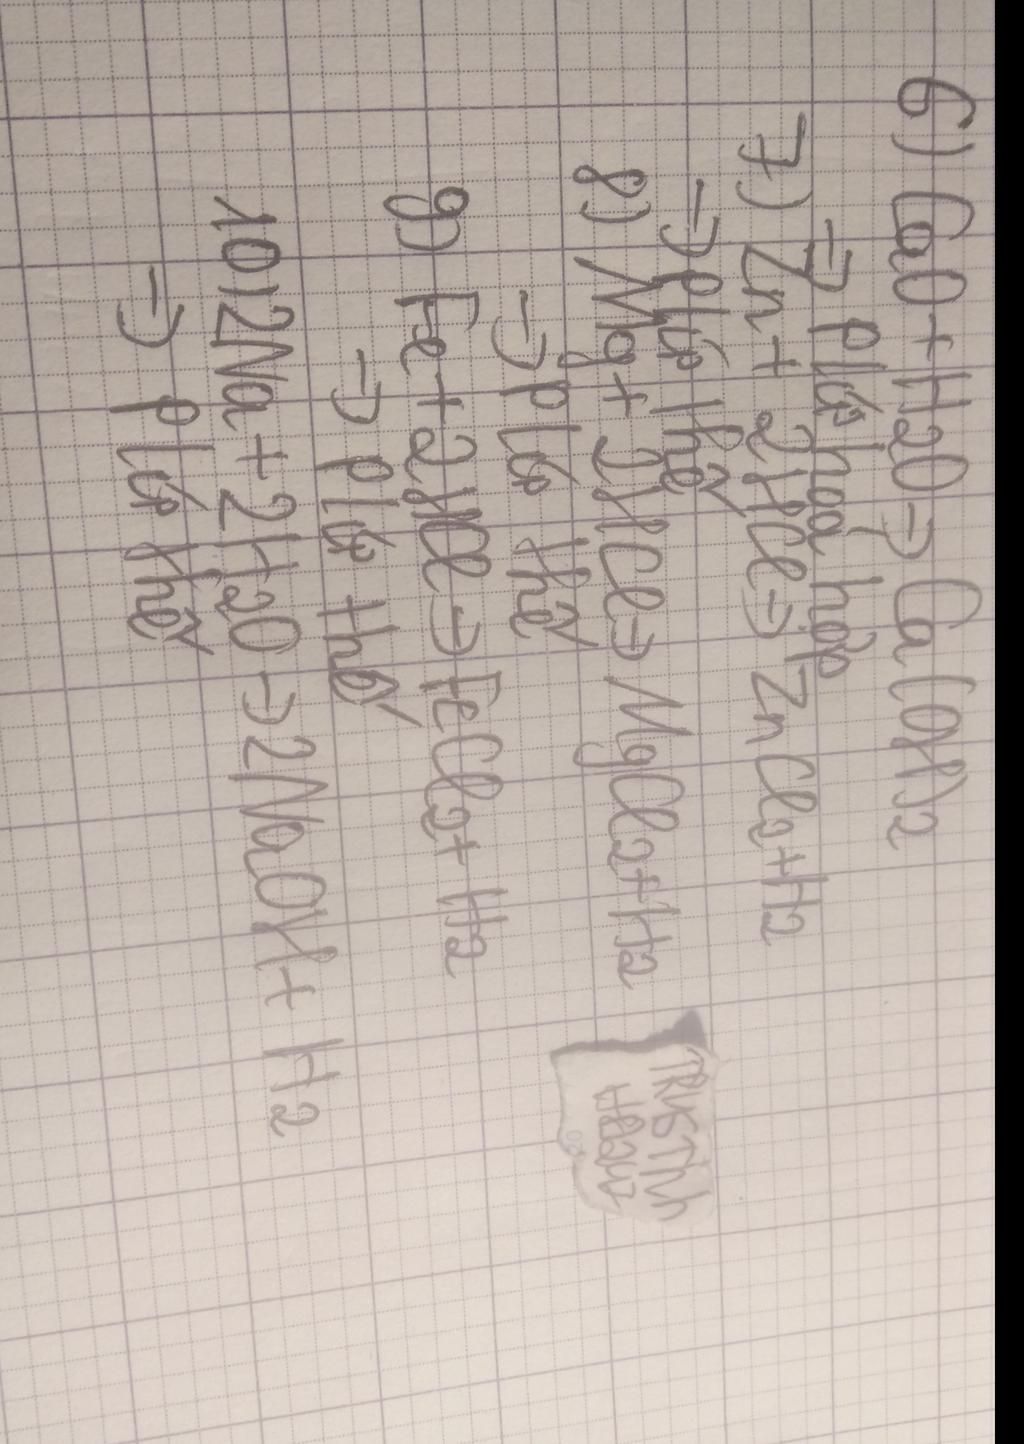 6) CaO + H2O → Ca(OH)2
⇒ p/ứ hoá hợp
7) Zn + 2HCl → ZnCl2 + H2
⇒ p/ứ thế
8) Mg + 2HCl → MgCl2 + H2
⇒ p/ứ thế
9) Fe + 2HCl → FeCl2 + H2
⇒ p/ứ thế
10) 2Na + 2H2O → 2NaOH + H2
⇒ p/ứ thế